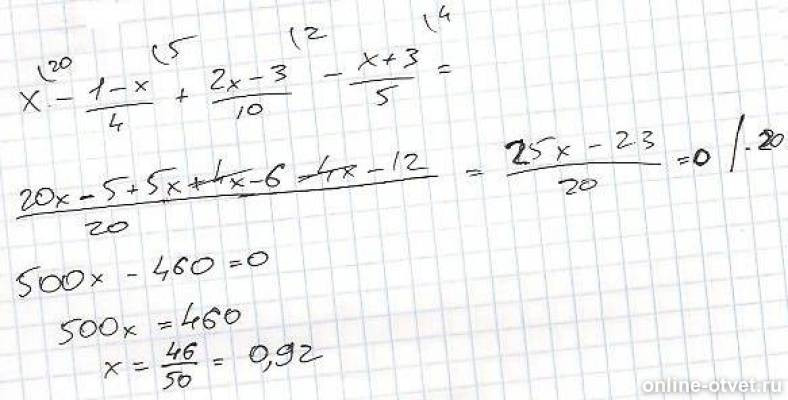 x⁽²⁰ - (1-x)/4 ⁽⁵ + (2x-3)/10 ⁽² - (x+3)/5 ⁽⁴ =
(20x-5+5x+4x-6-4x-12)/20 = (25x-23)/20 = 0 /·20
500x - 460 = 0
500x = 460
x = 46/50 = 0,92
online-otvet.ru